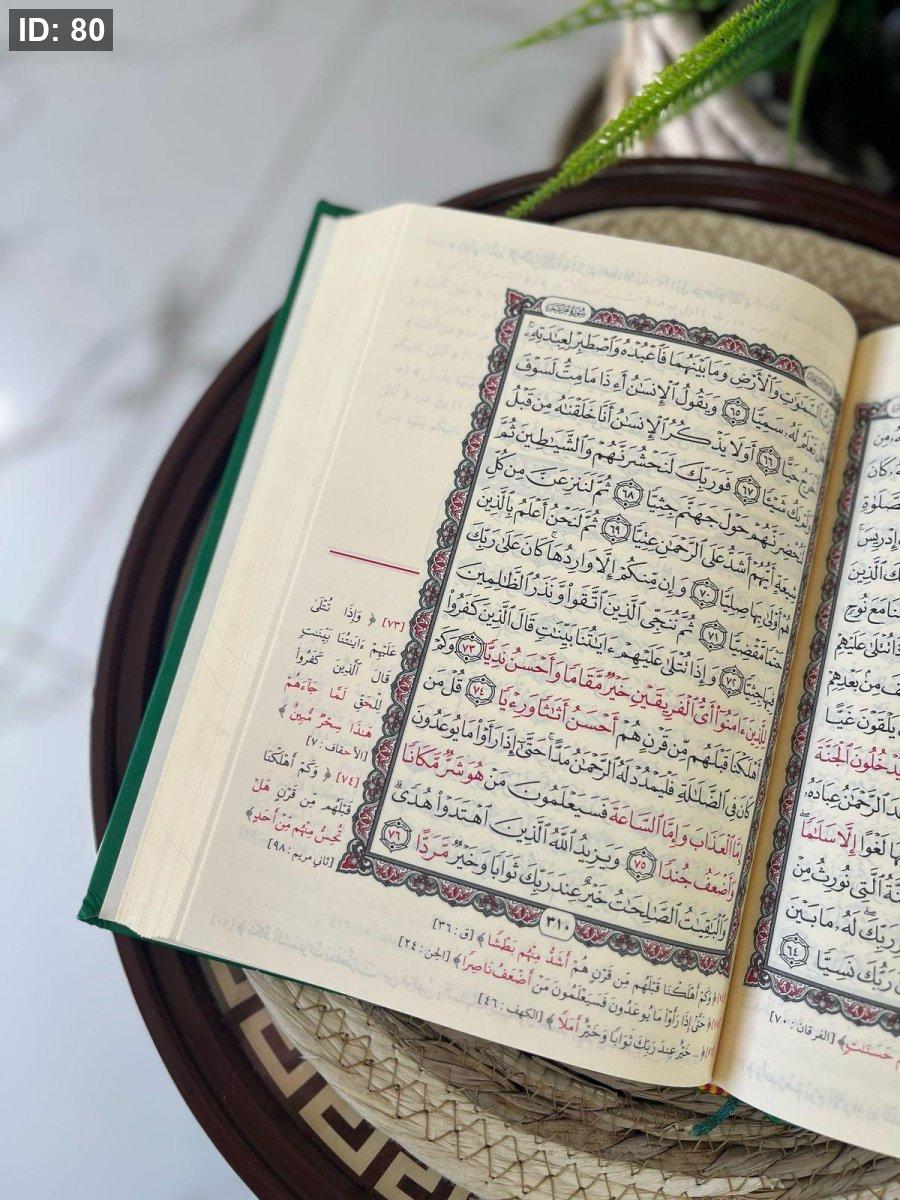 كَانَ
إِدْرِيسَ
ٱلَّذِينَ
مَعَ نُوحٍ
عَلَيْهِمْ
مِنۢ بَعْدِهِمْ
يَلْقَوْنَ غَيًّا
يَدْخُلُونَ ٱلْجَنَّةَ
ٱلرَّحْمَٰنُ عِبَادَهُۥ
لَغْوًا إِلَّا سَلَٰمًا
ٱلَّتِي نُورِثُ مِنْ
رَبِّكَ لَهُۥ مَا بَيْنَ
رَبُّكَ نَسِيًّا ٦٤
[الفرقان: ٧٠]
سُورَةُ مَرْيَمَ
ٱلسَّمَٰوَٰتِ وَٱلْأَرْضِ وَمَا بَيْنَهُمَا فَٱعْبُدْهُ وَٱصْطَبِرْ لِعِبَٰدَتِهِۦ
هَلْ تَعْلَمُ لَهُۥ سَمِيًّا ٦٥ وَيَقُولُ ٱلْإِنسَٰنُ أَءِذَا مَا مِتُّ لَسَوْفَ
أُخْرَجُ حَيًّا ٦٦ أَوَلَا يَذْكُرُ ٱلْإِنسَٰنُ أَنَّا خَلَقْنَٰهُ مِن قَبْلُ
وَلَمْ يَكُ شَيْـًٔا ٦٧ فَوَرَبِّكَ لَنَحْشُرَنَّهُمْ وَٱلشَّيَٰطِينَ ثُمَّ
لَنُحْضِرَنَّهُمْ حَوْلَ جَهَنَّمَ جِثِيًّا ٦٨ ثُمَّ لَنَنزِعَنَّ مِن كُلِّ
شِيعَةٍ أَيُّهُمْ أَشَدُّ عَلَى ٱلرَّحْمَٰنِ عِتِيًّا ٦٩ ثُمَّ لَنَحْنُ أَعْلَمُ بِٱلَّذِينَ
هُمْ أَوْلَىٰ بِهَا صِلِيًّا ٧٠ وَإِن مِّنكُمْ إِلَّا وَارِدُهَا كَانَ عَلَىٰ رَبِّكَ
حَتْمًا مَّقْضِيًّا ٧١ ثُمَّ نُنَجِّي ٱلَّذِينَ ٱتَّقَوا۟ وَّنَذَرُ ٱلظَّٰلِمِينَ
فِيهَا جِثِيًّا ٧٢ وَإِذَا تُتْلَىٰ عَلَيْهِمْ ءَايَٰتُنَا بَيِّنَٰتٍ قَالَ ٱلَّذِينَ كَفَرُوا۟
لِلَّذِينَ ءَامَنُوٓا۟ أَيُّ ٱلْفَرِيقَيْنِ خَيْرٌ مَّقَامًا وَأَحْسَنُ نَدِيًّا ٧٣ وَكَمْ
أَهْلَكْنَا قَبْلَهُم مِّن قَرْنٍ هُمْ أَحْسَنُ أَثَٰثًا وَرِءْيًا ٧٤ قُلْ مَن
كَانَ فِي ٱلضَّلَٰلَةِ فَلْيَمْدُدْ لَهُ ٱلرَّحْمَٰنُ مَدًّا حَتَّىٰٓ إِذَا رَأَوْا۟ مَا يُوعَدُونَ
إِمَّا ٱلْعَذَابَ وَإِمَّا ٱلسَّاعَةَ فَسَيَعْلَمُونَ مَنْ هُوَ شَرٌّ مَّكَانًا
وَأَضْعَفُ جُندًا ٧٥ وَيَزِيدُ ٱللَّهُ ٱلَّذِينَ ٱهْتَدَوْا۟ هُدًى
وَٱلْبَٰقِيَٰتُ ٱلصَّٰلِحَٰتُ خَيْرٌ عِندَ رَبِّكَ ثَوَابًا وَخَيْرٌ مَّرَدًّا ٧٦
٣١٠
[٧٣] ﴿ وَإِذَا تُتْلَىٰ
عَلَيْهِمْ ءَايَٰتُنَا بَيِّنَٰتٍ
قَالَ ٱلَّذِينَ كَفَرُوا۟
لِلْحَقِّ لَمَّا جَآءَهُمْ
هَٰذَا سِحْرٌ مُّبِينٌ ﴾
[الأحقاف: ٧]
[٧٤] ﴿ وَكَمْ أَهْلَكْنَا
قَبْلَهُم مِّن قَرْنٍ هَلْ
تُحِسُّ مِنْهُم مِّنْ أَحَدٍ ﴾
[ثاني مريم: ٩٨]
﴿ وَكَمْ أَهْلَكْنَا قَبْلَهُم مِّن قَرْنٍ هُمْ أَشَدُّ مِنْهُم بَطْشًا ﴾ [ق: ٣٦]
﴿ حَتَّىٰٓ إِذَا رَأَوْا۟ مَا يُوعَدُونَ فَسَيَعْلَمُونَ مَنْ أَضْعَفُ نَاصِرًا ﴾ [الجن: ٢٤]
﴿ ... خَيْرٌ عِندَ رَبِّكَ ثَوَابًا وَخَيْرٌ أَمَلًا ﴾ [الكهف: ٤٦]
ID: 80